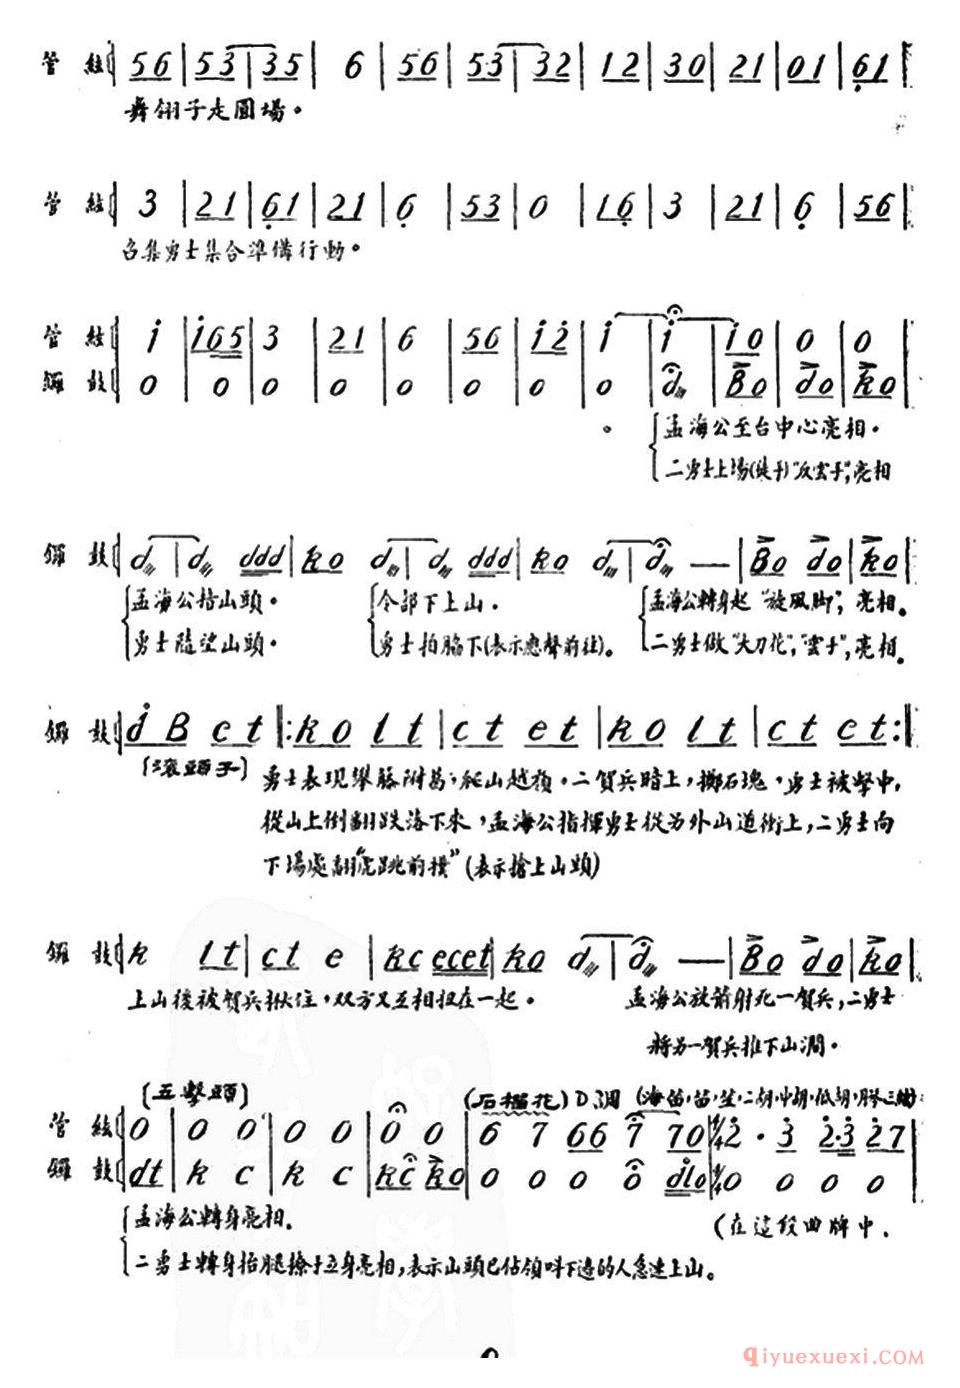 管絃 56 | 53 | 35 | 6 | 56 | 53 | 32 | 12 | 30 | 21 | 01 | 61
舞翎子走圓場。
管絃 3 | 21 | 61 | 21 | 6 | 53 | 0 | 16 | 3 | 21 | 6 | 56
召集勇士集合準備行動。
管絃 i | i65 | 3 | 21 | 6 | 56 | i2 | i | i | i0 | 0 | 0
鑼鼓 0 | 0 | 0 | 0 | 0 | 0 | 0 | 0 | d | B0 | d0 | k0
孟海公至台中心亮相。
二勇士上場(徒手)"反雲手",亮相
鑼鼓 d | d ddd | k0 d | d ddd | k0 d | d — | B0 d0 | k0
孟海公指山頭。 令部下上山。 孟海公轉身起"旋風脚",亮相。
勇士隨望山頭。 勇士拍脇下(表示應聲前往)。 二勇士做"大刀花","雲手",亮相。
鑼鼓 d B c t |: k 0 l t | c t e t | k 0 l t | c t c t :|
[滾頭子] 勇士表現攀藤附葛,爬山越嶺,二賀兵暗上,擲石塊,勇士被擊中,
從山上倒翻跌落下來,孟海公指揮勇士從另外山道衝上,二勇士向
下場處翻"虎跳前撲"(表示搶上山頭)
鑼鼓 k l t | c t e | k c e c e t | k 0 d | d — | B0 d0 | k0
上山後被賀兵揪住,双方又互相扭在一起。 孟海公放箭射死一賀兵,二勇士
將另一賀兵推下山澗。
[五擊頭] (石榴花) D調 (海笛,笛,笙,二胡,中胡,低胡,
管絃 0 | 0 0 | 0 0 | 0 0 | 6 7 66 7 70 | 4/4 2 · 3 2·3 27
鑼鼓 dt | k c | k c | kc k0 | 0 0 0 0 dl0 | 4/4 0 0 0 0
孟海公轉身亮相。 (在這段曲牌中,
二勇士轉身抬腿撩手立身亮相,表示山頭已佔領叫下邊的人急速上山。
qiyuexuexi.COM